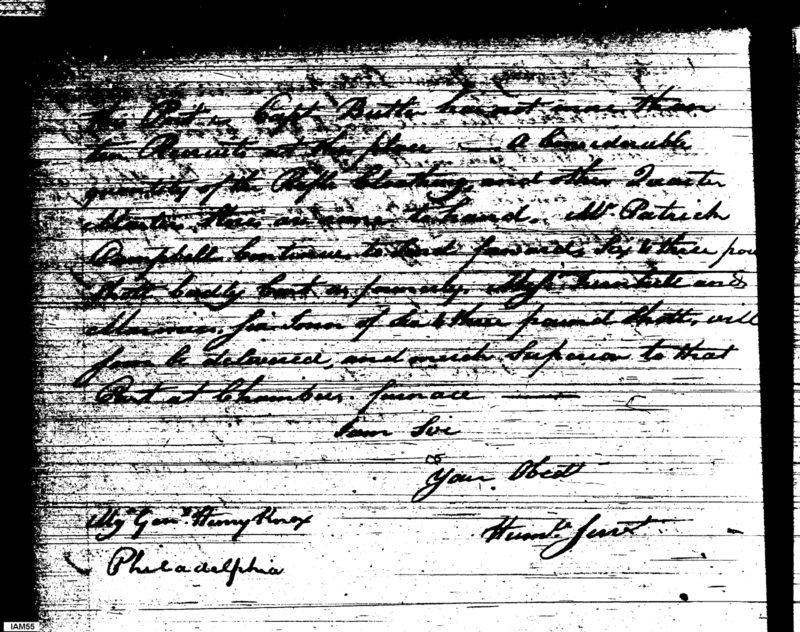 this Post is Capt Butler has not more than
ten Recruits at this place — A Considerable
quantity of the Rifle Cloathing, and other Quarter
Master Stores are come to hand. Mr. Patrick
Campbell Continues to Send forward, Six & three pou
Shott badly Cast as formerly. Messrs Turnbull and
Marmies, Six tons of six & three pound Shott, will
soon be delivered, and much Superior to that
Cast at Chambers furnace —
I am Sir
Your Obedt
Humbl Servt
Majr Genl Henry Knox
Philadelphia
IAM55